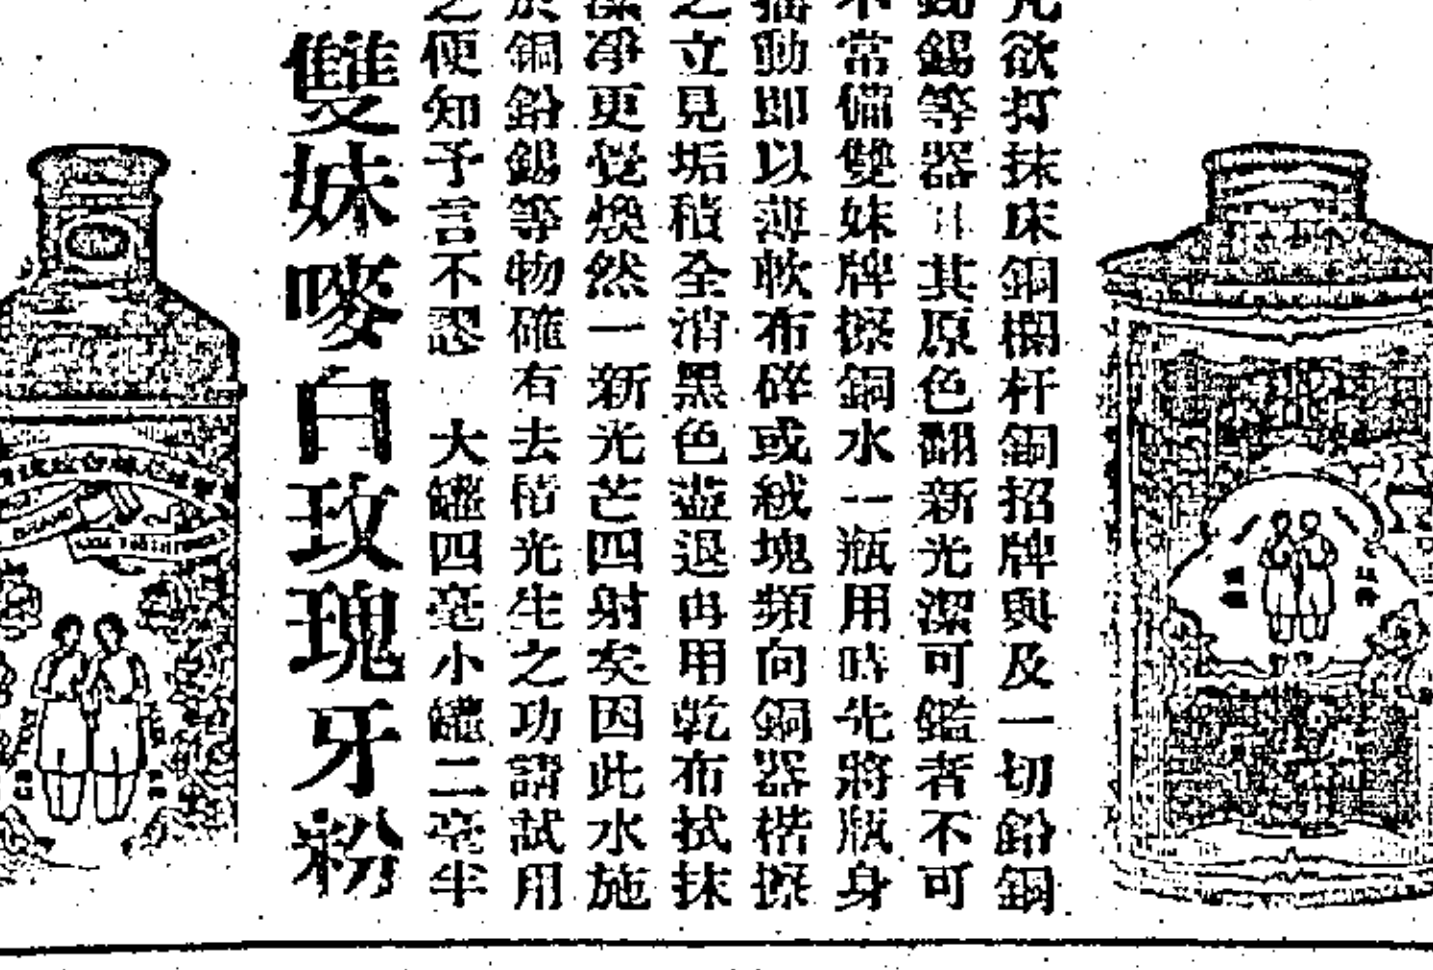 凡欲打抹床銅欄杆銅招牌與及一切鉛銅
錫等器皿其原色翻新光潔可鑑者不可
不常備雙妹牌擦銅水一瓶用時先將瓶身
搖動即以薄軟布碎或絨塊頻向銅器楷擦
之立見垢積全消黑色盡退再用乾布拭抹
潔淨更覺煥然一新光芒四射矣因此水施
於銅鉛錫等物確有去積光生之功請試用
之便知予言不謬 大罐四毫小罐二毫半
雙妹嘜白玫瑰牙粉